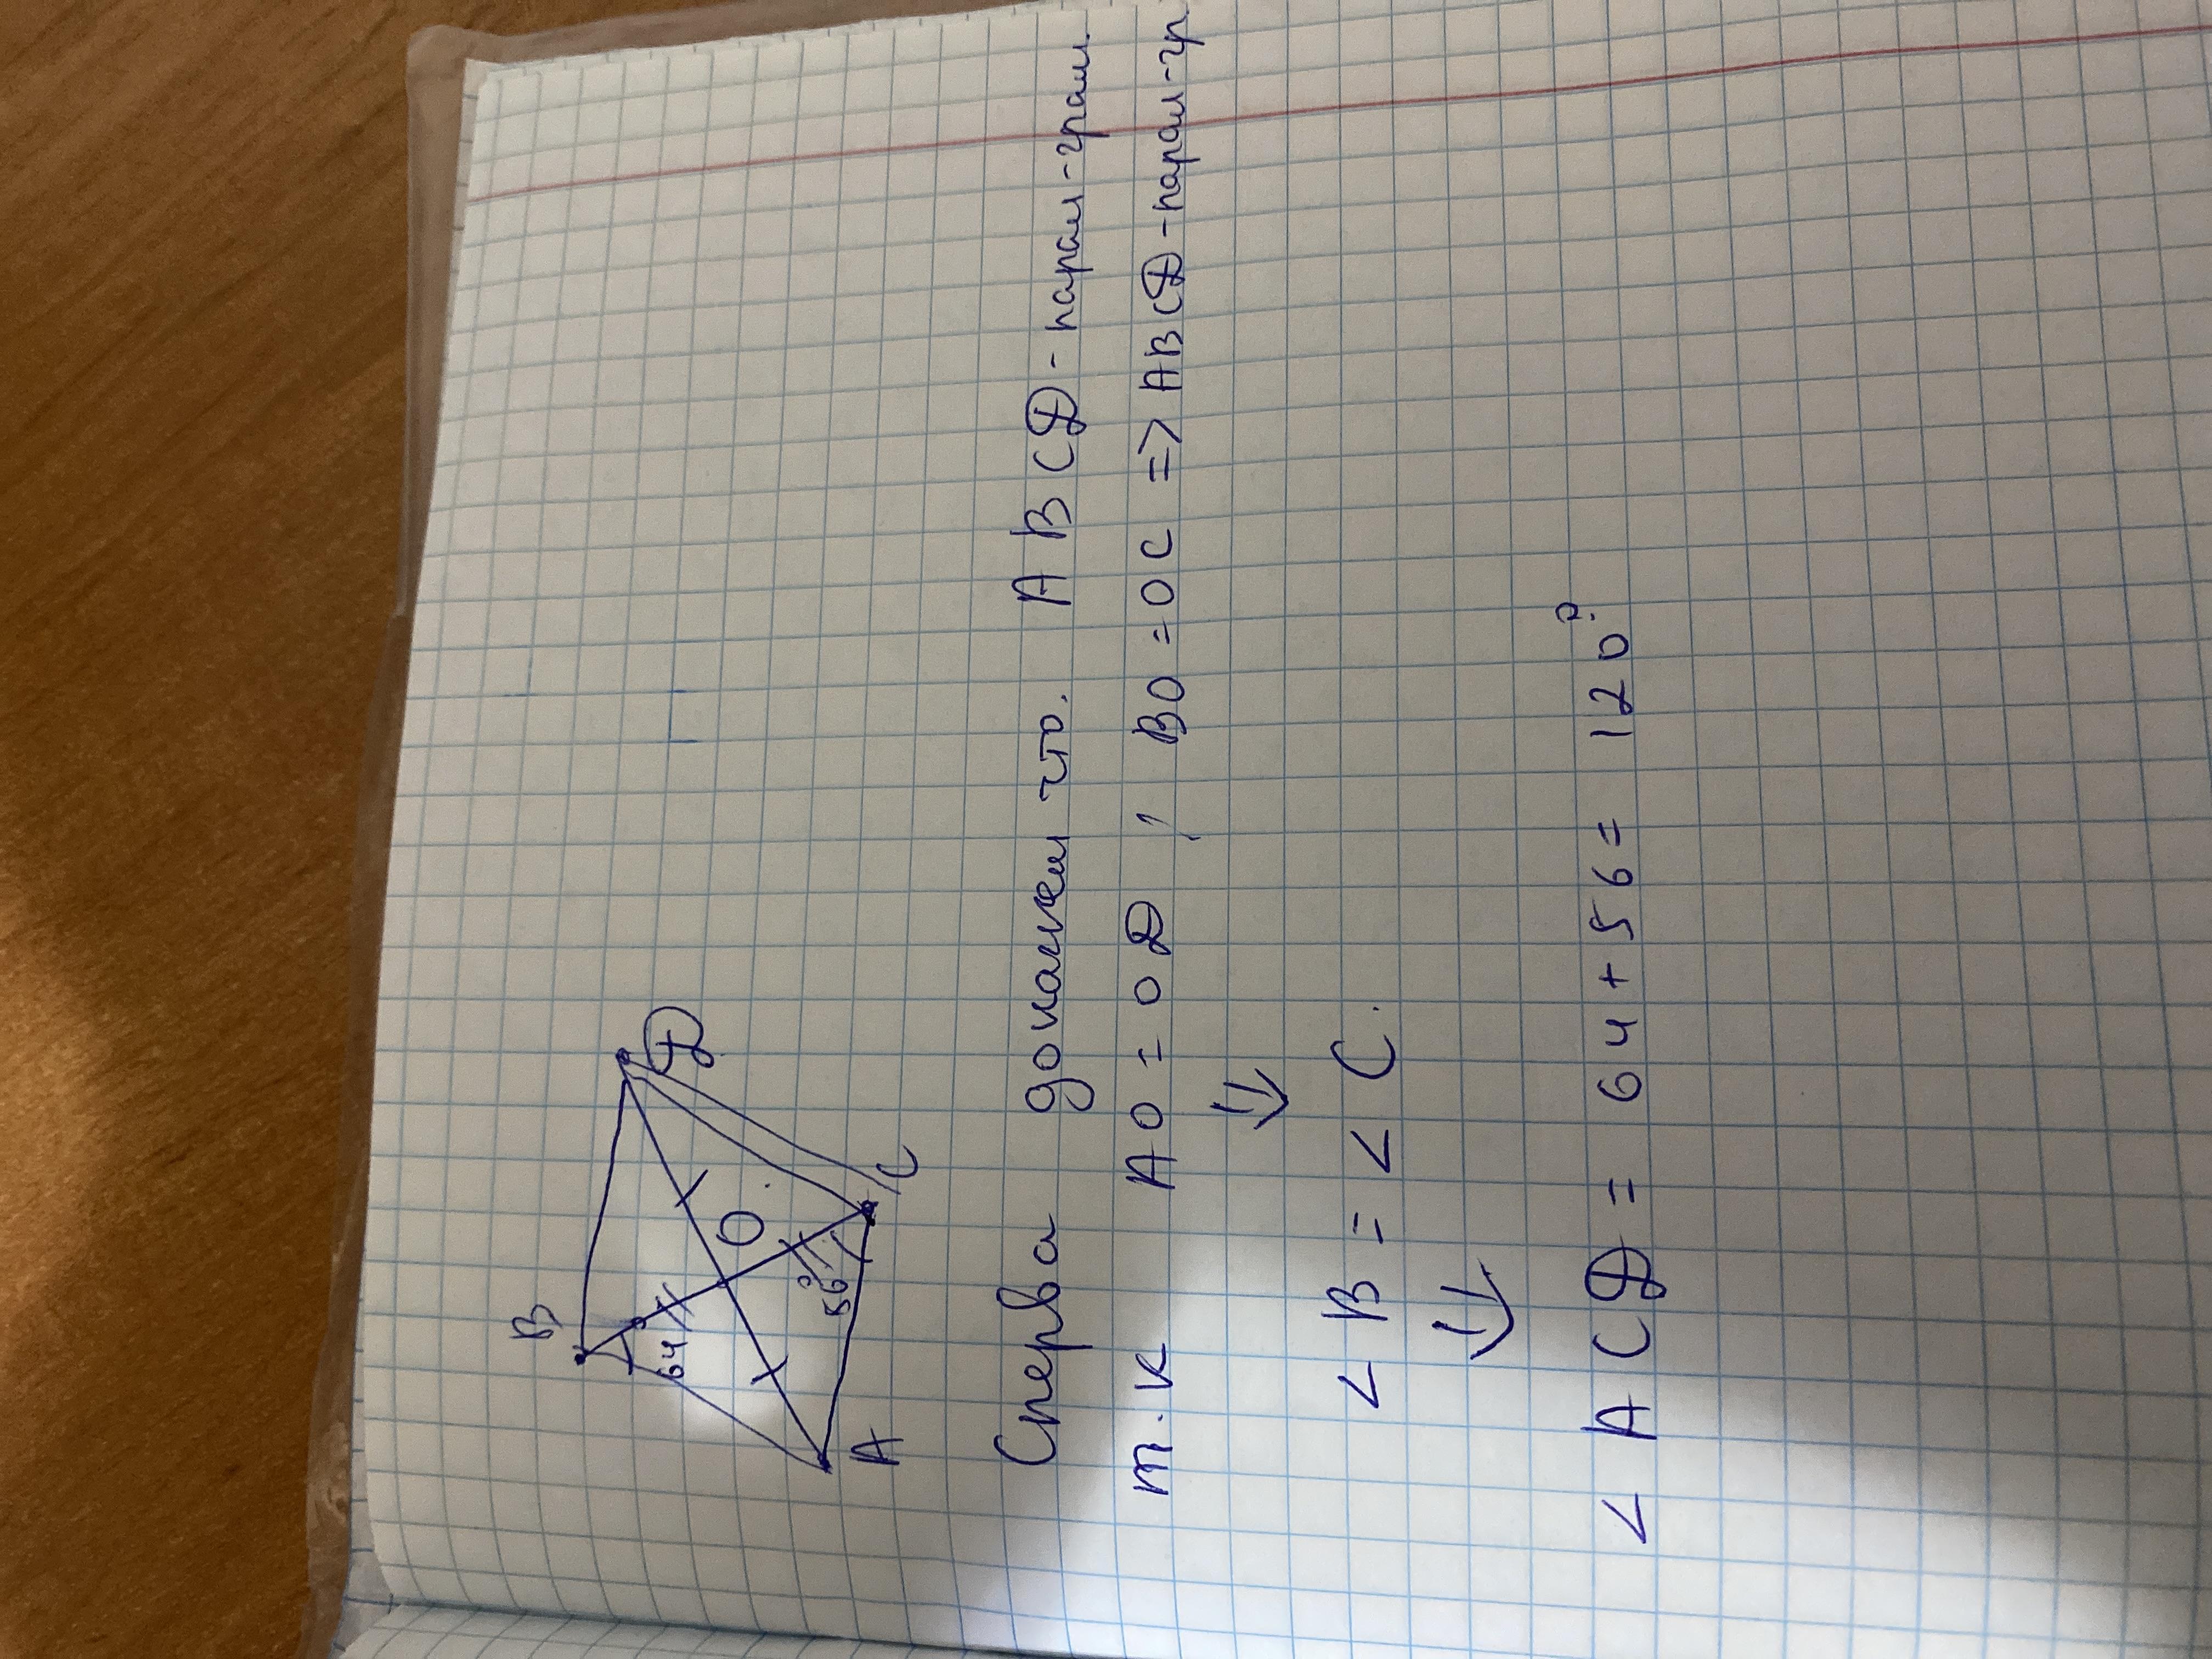 B
D
64
O
56°
A
C
Сперва докажем что. ABCD - парал-грам
т.к AO = OD ; BO = OC => ABCD - парал-гр.
∠B = ∠C.
∠ACD = 64 + 56 = 120°.